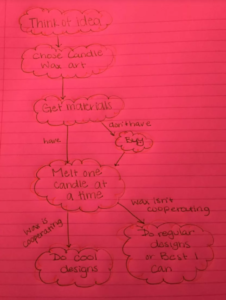 Think of idea
Chose Candle
Wax art
Get materials
don't have
have
Buy
Melt one
candle at
a time
Wax is
cooperating
wax isn't
cooperating
Do cool
designs
Do regular
designs
or Best I
can